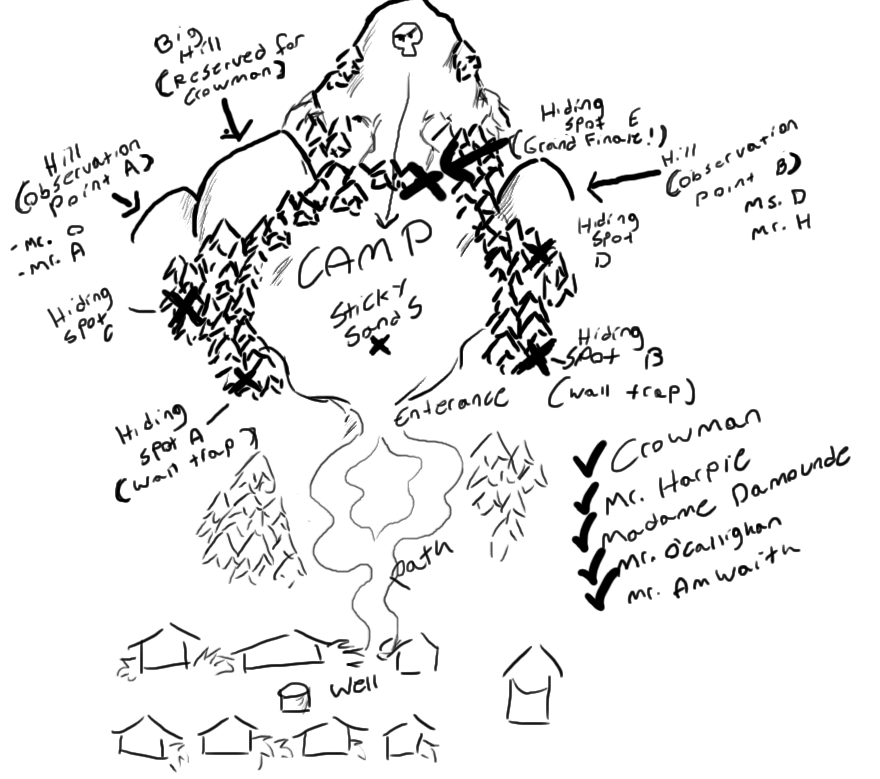 Big
Hill
(Reserved for
Crowman)
Hill
(Observation
Point A)
- Mr. O
- Mr. A
Hiding
Spot E
(Grand Finale!)
Hill
(Observation
Point B)
Ms. D
Mr. H
Hiding
Spot
D
CAMP
Sticky
Sands
Hiding
Spot
C
Hiding
Spot B
(Wall trap)
Enterance
Hiding
Spot A
(Wall trap)
Crowman
Mr. Harpie
Madame Damounde
Mr. O'Callighan
Mr. Amwaith
Path
Well